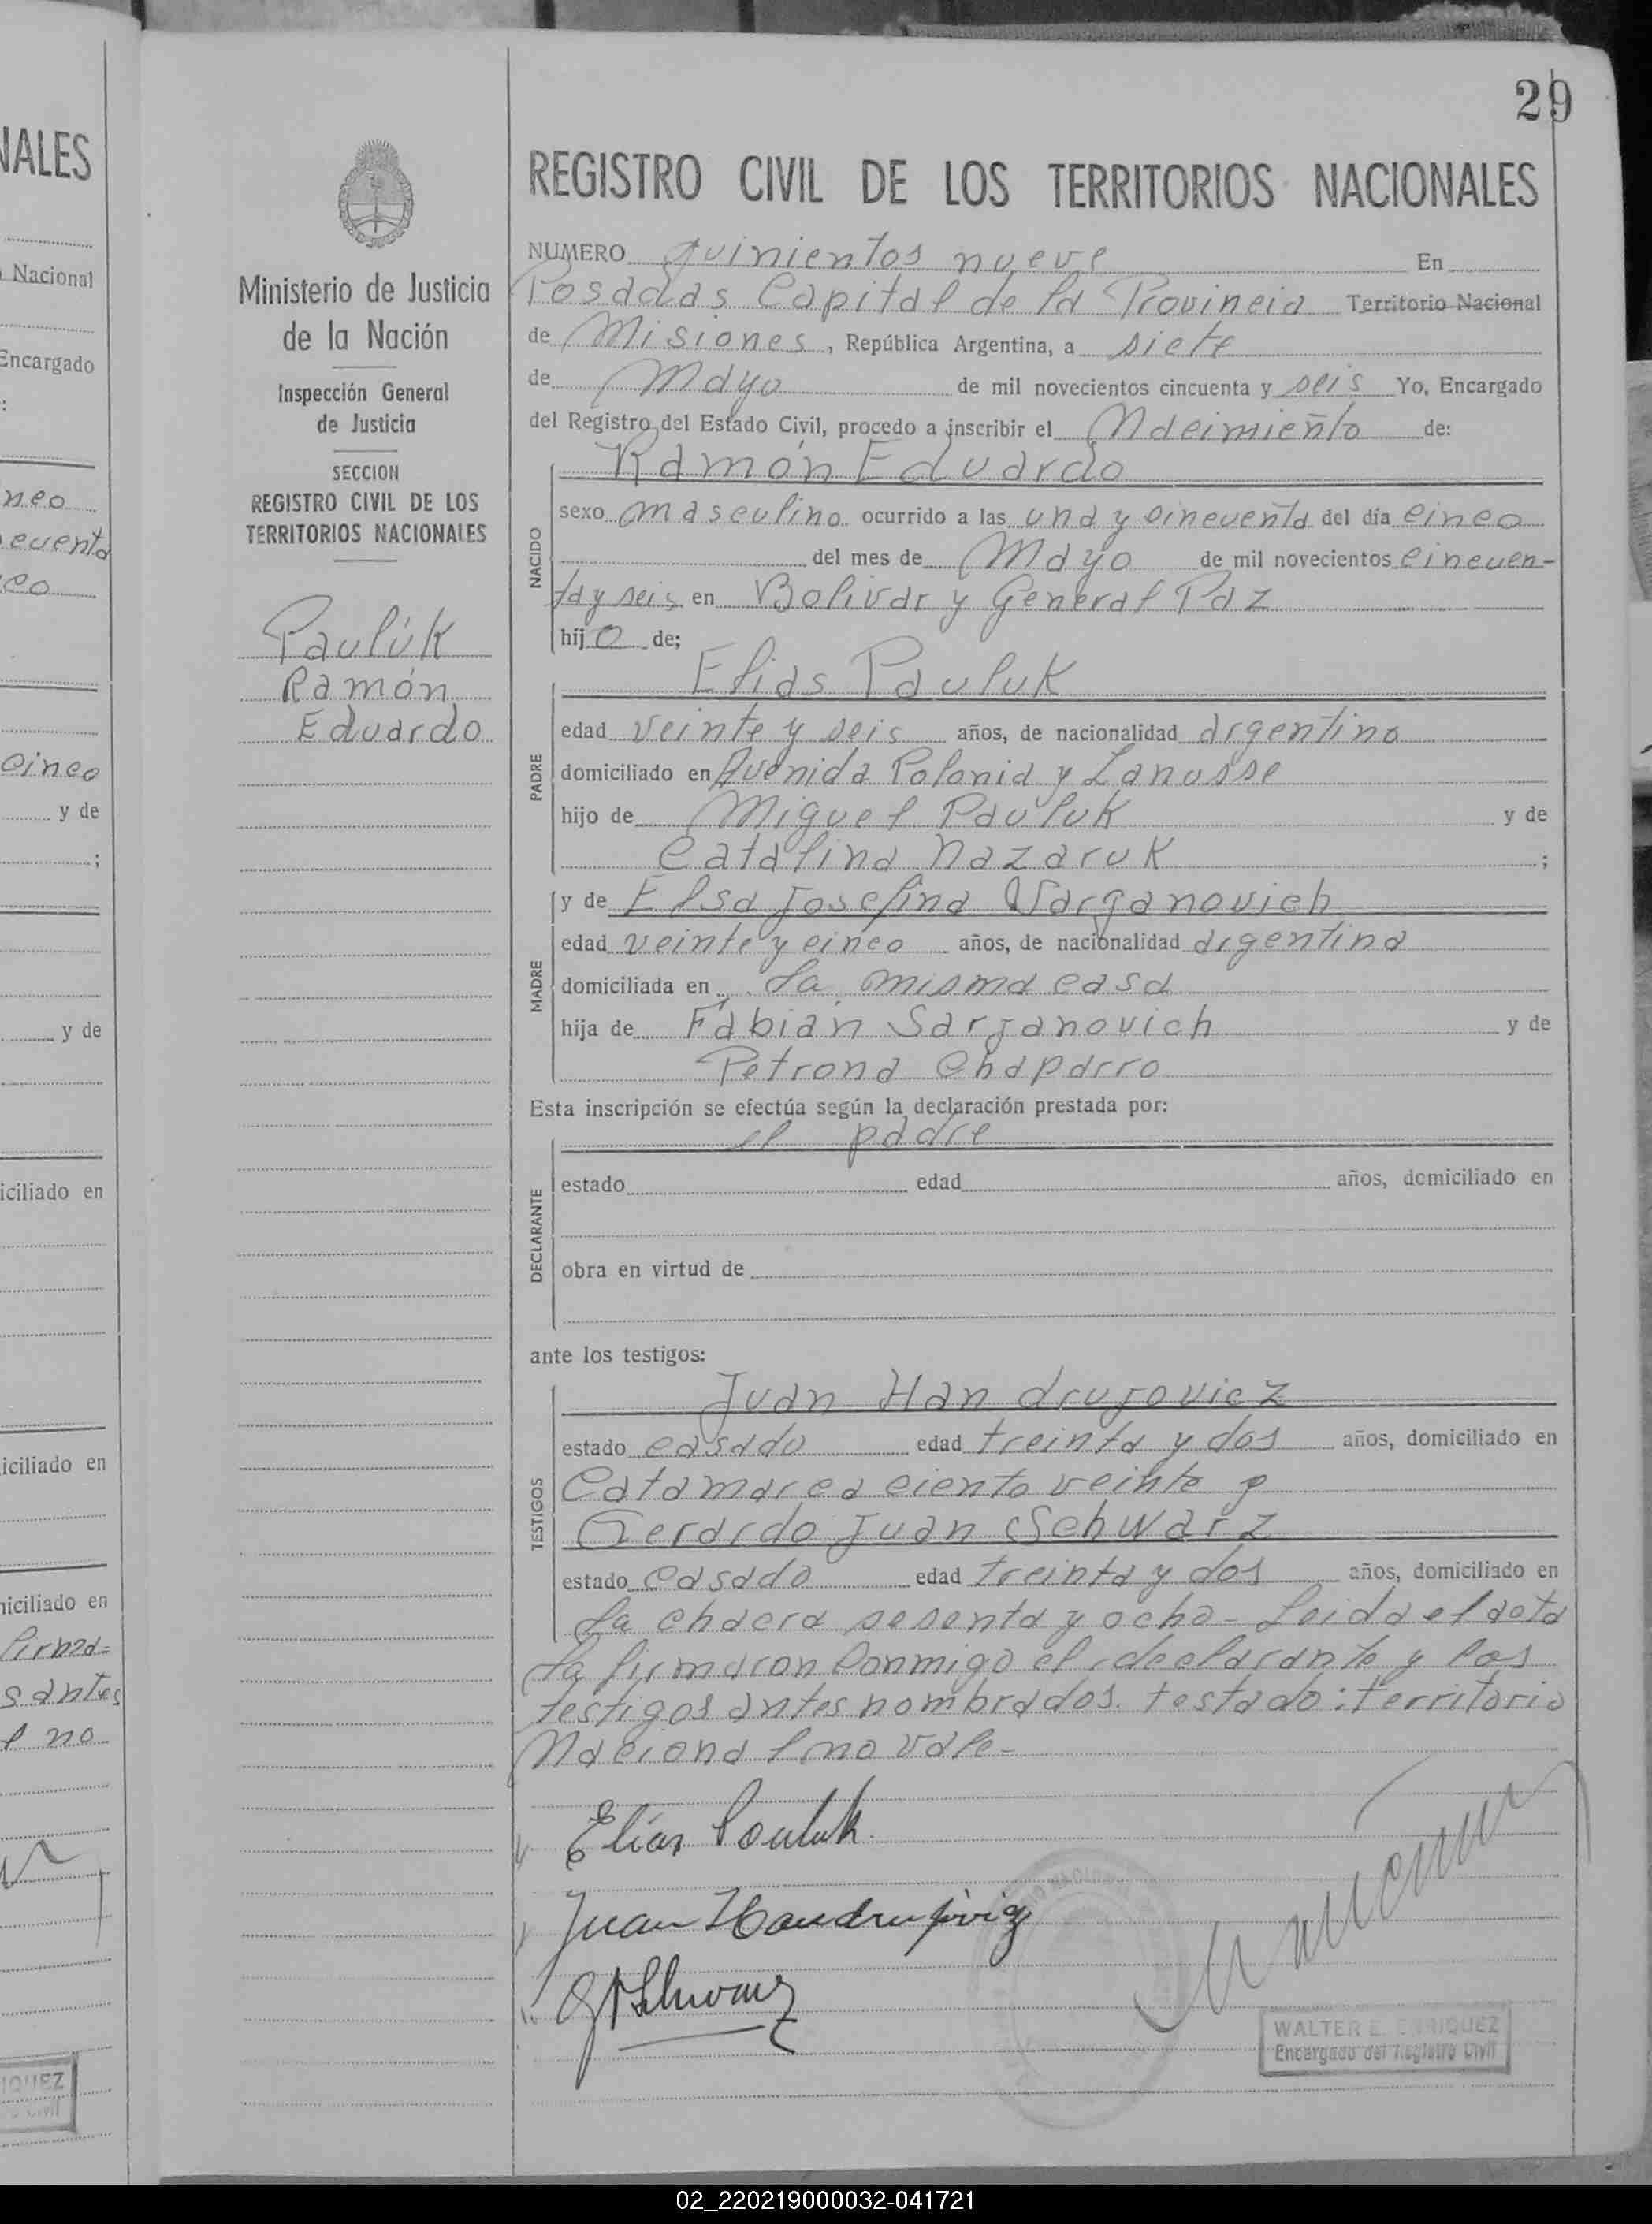 29
REGISTRO CIVIL DE LOS TERRITORIOS NACIONALES
Ministerio de Justicia
de la Nación
Inspección General
de Justicia
SECCION
REGISTRO CIVIL DE LOS
TERRITORIOS NACIONALES
Paulúk
Ramón
Eduardo
NUMERO quinientos nueve En
Posadas Capital de la Provincia Territorio Nacional
de Misiones, República Argentina, a siete
de Mayo de mil novecientos cincuenta y seis Yo, Encargado
del Registro del Estado Civil, procedo a inscribir el Nacimiento de:
NACIDO
Ramón Eduardo
sexo masculino ocurrido a las una y cincuenta del día cinco
del mes de Mayo de mil novecientos cincuen-
ta y seis en Bolivar y General Paz
hijo de;
PADRE
Elias Pauluk
edad veinte y seis años, de nacionalidad argentino
domiciliado en Avenida Polonia y Lanusse
hijo de Miguel Pauluk y de
Catalina Nazaruk ;
MADRE
y de Elsa Josefina Warganovich
edad veinte y cinco años, de nacionalidad argentina
domiciliada en la misma casa
hija de Fabián Sarganovich y de
Petrona Chaparro
Esta inscripción se efectúa según la declaración prestada por:
DECLARANTE
el padre
estado edad años, domiciliado en
obra en virtud de
ante los testigos:
TESTIGOS
Juan Handrujovicz
estado casado edad treinta y dos años, domiciliado en
Catamarca ciento veinte y
Gerardo Juan Schwarz
estado casado edad treinta y dos años, domiciliado en
la chacra sesenta y ocho- Leida el acta
la firmaron conmigo el declarante y los
testigos antes nombrados. testado: territorio
Nacional no vale-
Elías Pauluk
Juan Handrujoviez
G J Schwarz
WALTER E. ENRIQUEZ
Encargado del Registro Civil
NALES
Nacional
Encargado
:
y de
;
y de
iciliado en
iciliado en
niciliado en
firma-
santes
l no
IQUEZ
02_220219000032-041721